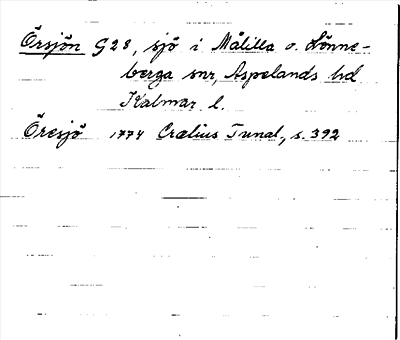 Örsjön G28, sjö i Målilla o. Lönne-
berga snr, Aspelands hd
Kalmar l.
Öresjö 1774 Crælius Tunal, s. 392